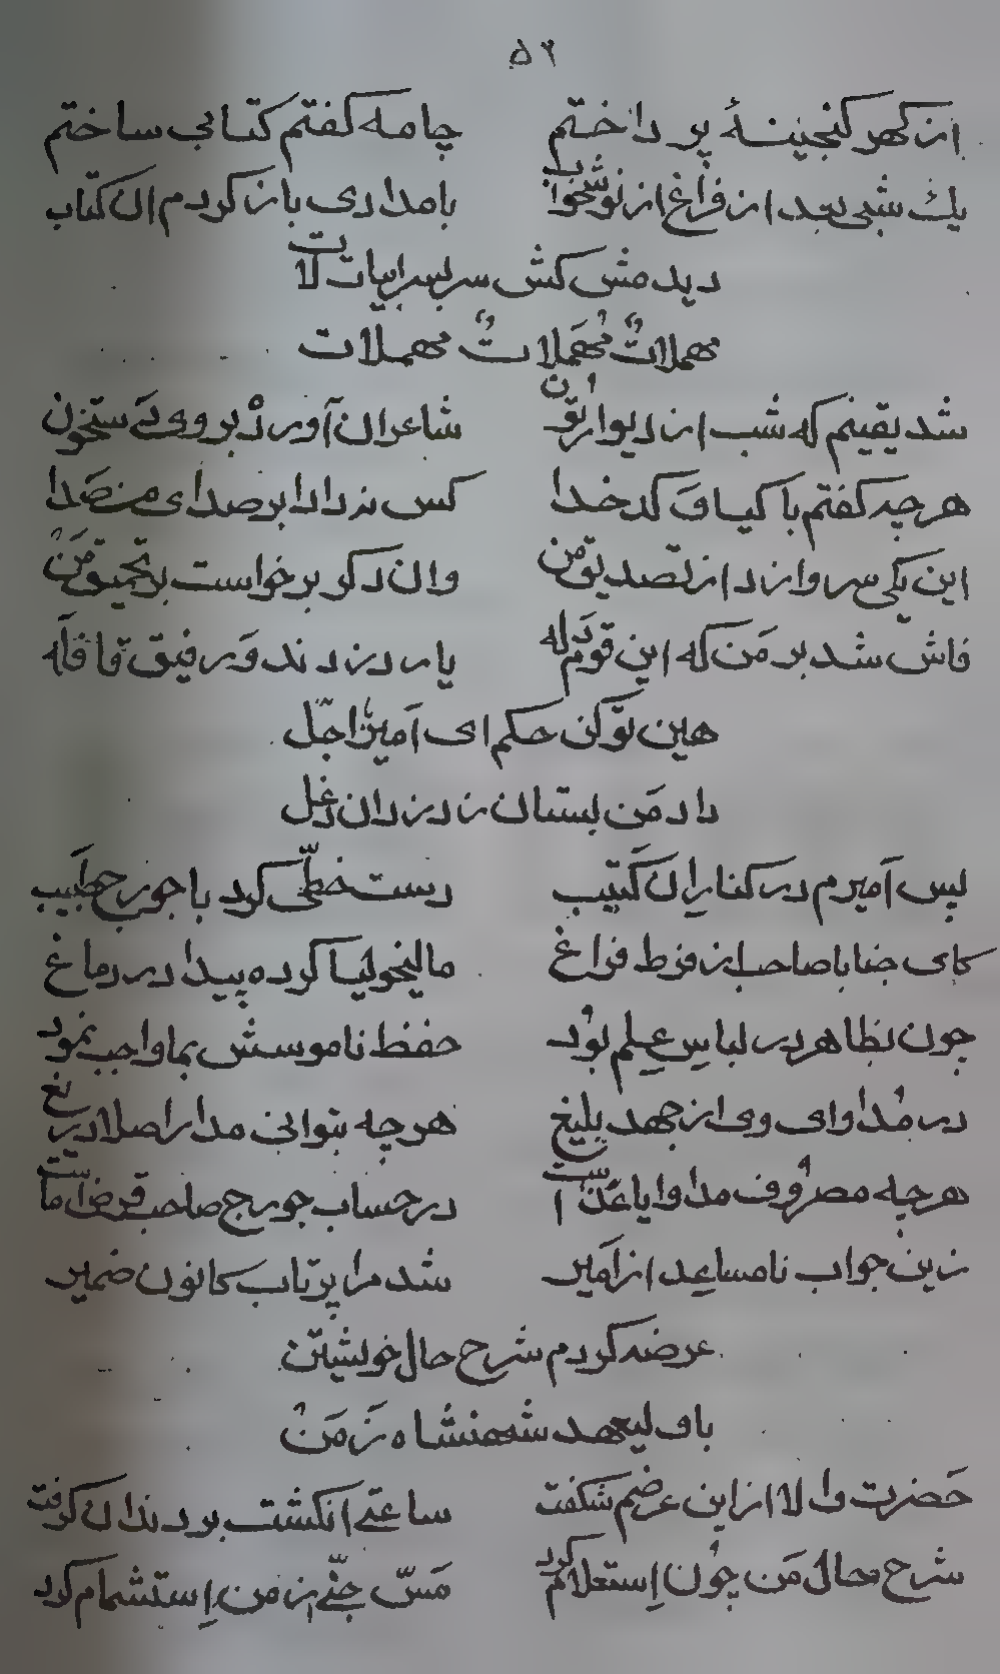 ۵۲
از گهر گنجینهٔ پرداختم چامه گفتم کتابی ساختم
یك شبی بعد از فراغ از نوشخواب بامدادی باز کردم ان کتاب
دیدمش کش سربسر ابیات لات
مهملاتٌ مُهَملاتٌ مهملات
شد یقینم که شب از دیوار تون شاعران آورد بر وی دَستخون
هرچه گفتم با کیا وَ کدخدا کس نداد ابر صدای من صَدا
این یکی سر وا زد از تصدیق من وان دگر برخواست بر تحمیق مَن
فاش شد بر مَن که این قوم دَله یار دزدند وَ رفیق قافلَه
هین تو کن حکم ای اَمیرِ اجّل
داد مَن بستان ز دزدان دغل
پس اَمیرم در کنار ان کَتیب دست خطّی کرد با جورج طبیب
کای جناب صاحب از فرط فراغ مالیخولیا کرده پیدا در دماغ
چون بظاهر در لباس عِلم بوُد حفظ ناموسش بما واجب نمود
در مُداوای وی از جهد بلیغ هرچه بتوانی مدار اصلا دریغ
هرچه مصرُوف مداوایا عَذا است در حساب جورج صاحب قرض ماست
زین جواب نامساعِد از اَمیر شد مرا پرتاب کانون ضمیر
عرضه کردم شرح حال خویشتن
با ولیعهد شهنشاه زَمَن
حَضرت والا از این عرضم شگفت ساعتی انگشت بر دندان گرفت
شرح حال مَن چُون اِستعلام کرد مَسّ جنّی از من اِستشمام کرد